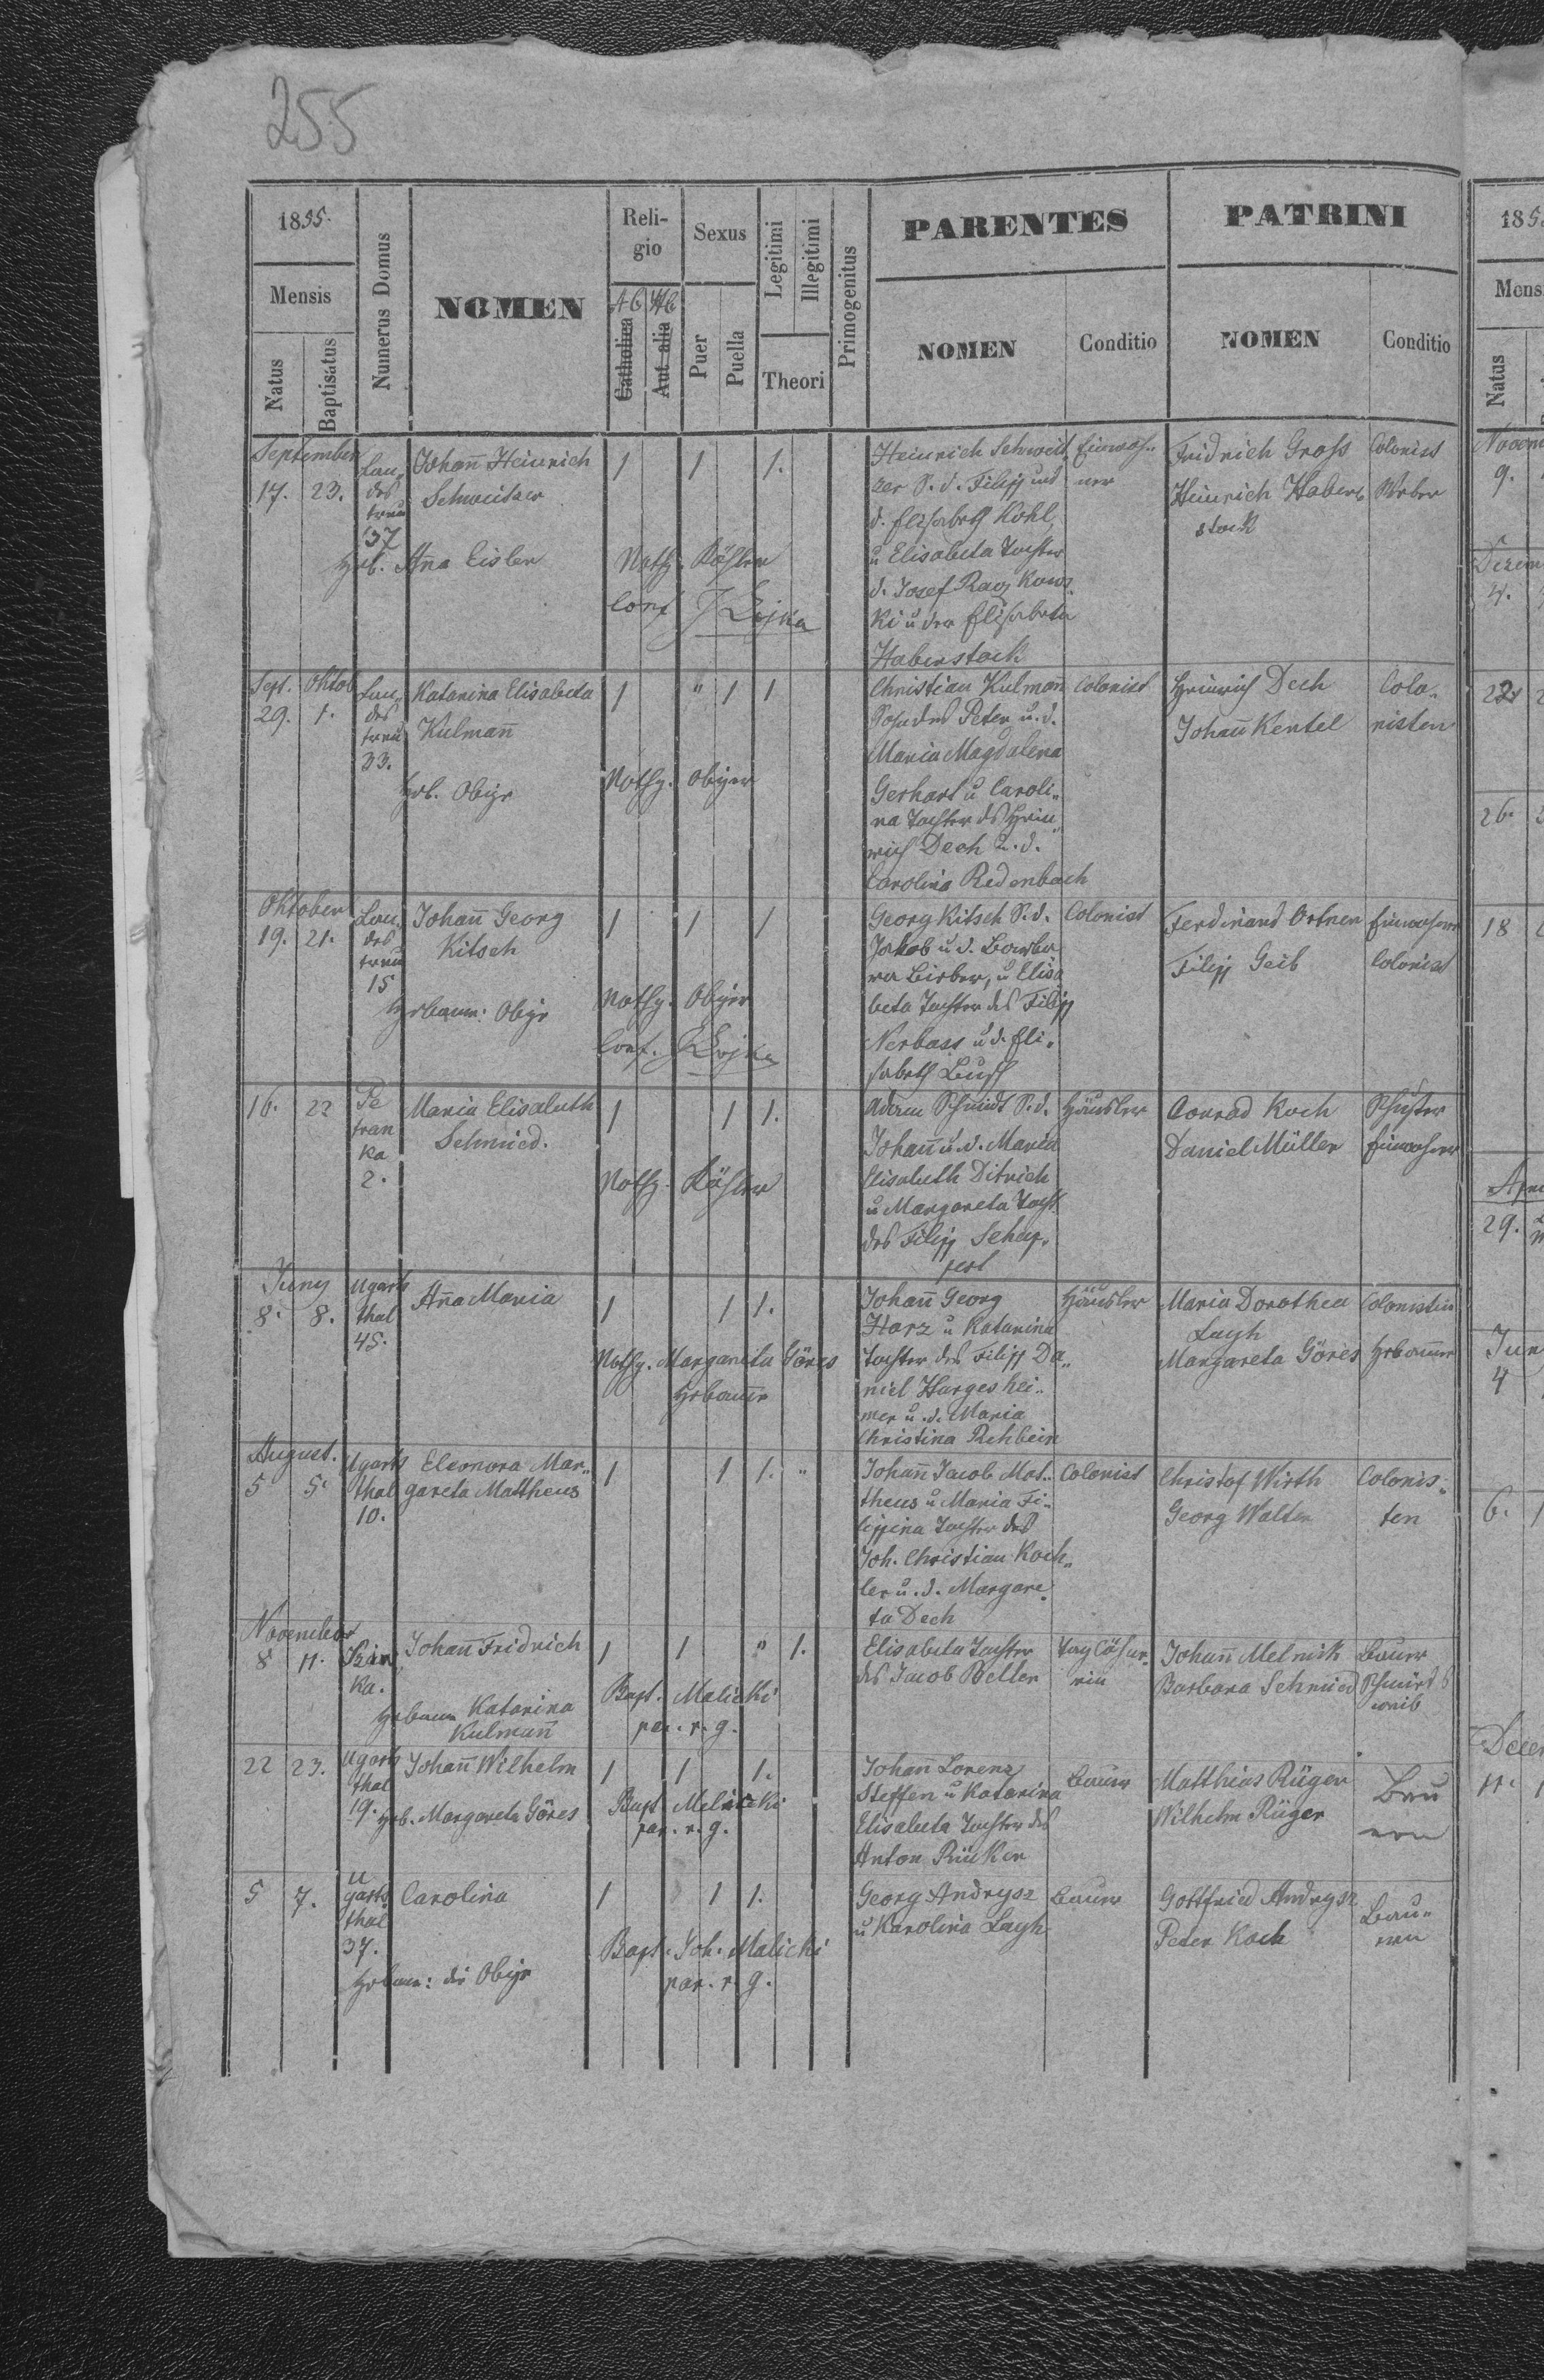 255
1855.
Mensis
Natus
Baptisatus
Numerus Domus
NOMEN
Reli-
gio
AC HC
Catholica
Aut alia
Sexus
Puer
Puella
Legitimi
Illegitimi
Theori
Primogenitus
PARENTES
NOMEN
Conditio
PATRINI
NOMEN
Conditio
September
17. 23.
Lan,
des
treu
37
Johañ Heinrich
Schweitzer
Heb. Aña Eisler
1 1 1.
Nothg. Röhler
Conf J Lojka
Heinrich Schweit
zer S. d. Filipp und
d. Elisabeth Kohl,
u Elisabeta Tochter
d. Josef
ki u der Elisabeta
Haberstock
Einwoh..
ner
Fridrich Gross
Heinrich Haber
stock
Colonist
Weber
Sept. Oktob
29. 1.
Lan,
des
treu
33.
Katarina Elisabeta
Kulmañ
Heb. Obige
1 " 1 1
Nothg. obiger
Christian Kulman
Sohn des Peter u. d.
Maria Magdalena
Gerhart u Caroli„
na Tochter ds Hein„
rich Dech u. d.
Carolina Redenbach
Colonist
Heinrich Dech
Johañ Kentel
Colo„
nisten
Oktober
19. 21.
Lan,
des
treu
15
Johañ Georg
Kitsch
Hebamme: Obige
1 1 1
Nothg. Obiger
Conf. J Lojka
Georg Kitsch S. d.
Jakob u d. Barba
ra Bisber, u Elisa
beta Tochter des Filipp
Nerbass u d. Eli„
sabeth Busch
Colonist
Ferdinand Ortner
Filipp Geib
Einwohner
Colonist
16. 22
Pe
tran
ka
2.
Maria Elisabeth
Schmied.
1 1 1.
Nothg. Röhler
Adam Schmidt S. d.
Johañ u. d. Maria
Elisabeth Ditrich
u Margareta Tocht
des Filipp Schap„
pert
Häusler
Conrad Koch
Daniel Müller
Schuster
Einwohner
Juny
8. 8.
Ugarts
thal
45.
Aña Maria
1 1 1.
Nothg. Margareta Göres
Hebamme
Johañ Georg
Harz u Katarina
Tochter des Filipp Da„
niel Hargeshei„
mer u. d. Maria
Christina Rehbein
Häusler
Maria Dorothea
Layh
Margareta Göres
Colonistin
Hebamme
August.
5 5.
Ugarts
thal
10.
Eleonora Mar„
gareta Mattheus
1 1 1. "
Johañ Jacob Mat„
theus u Maria Fi„
lippina Tochter des
Joh. Christian Koch„
ler u. d. Margare„
ta Dech
Colonist
Christof Wirth
Georg Walter
Colonis„
ten
November
8 11.
ka.
Johan Fridrich
Hebamme Katarina
Kulmañ
1 1 " 1.
Bapt. Malicki
par. r. g.
Elisabeta Tochter
des Jacob Beller
Taglöhne„
rin
Johañ Melnik
Barbara Schmied
Bauer
Schmieds
weib
22 23.
Ugarts
thal
19.
Johañ Wilhelm
Heb. Margareta Göres
1 1 1.
Bapt. Malicki
par. r. g.
Johañ Lorenz
Steffen u Katarina
Elisabeta Tochter des
Anton Rücker
Bauer
Matthias Rüger
Wilhelm Rüger
Bau
ern
5 7.
U
garts
thal
37.
Carolina
Hebam: die Obige
1 1 1.
Bapt. Joh. Malicki
par. r. g.
Georg Andrysz
u Karolina Layh
Bauer
Gottfried Andrysz
Peter Koch
Bau„
ern
185
Mens
Natus
Novem
9.
Dezem
4.
22
26.
18
Apr
29.
Jun
4
6.
Decem
11.